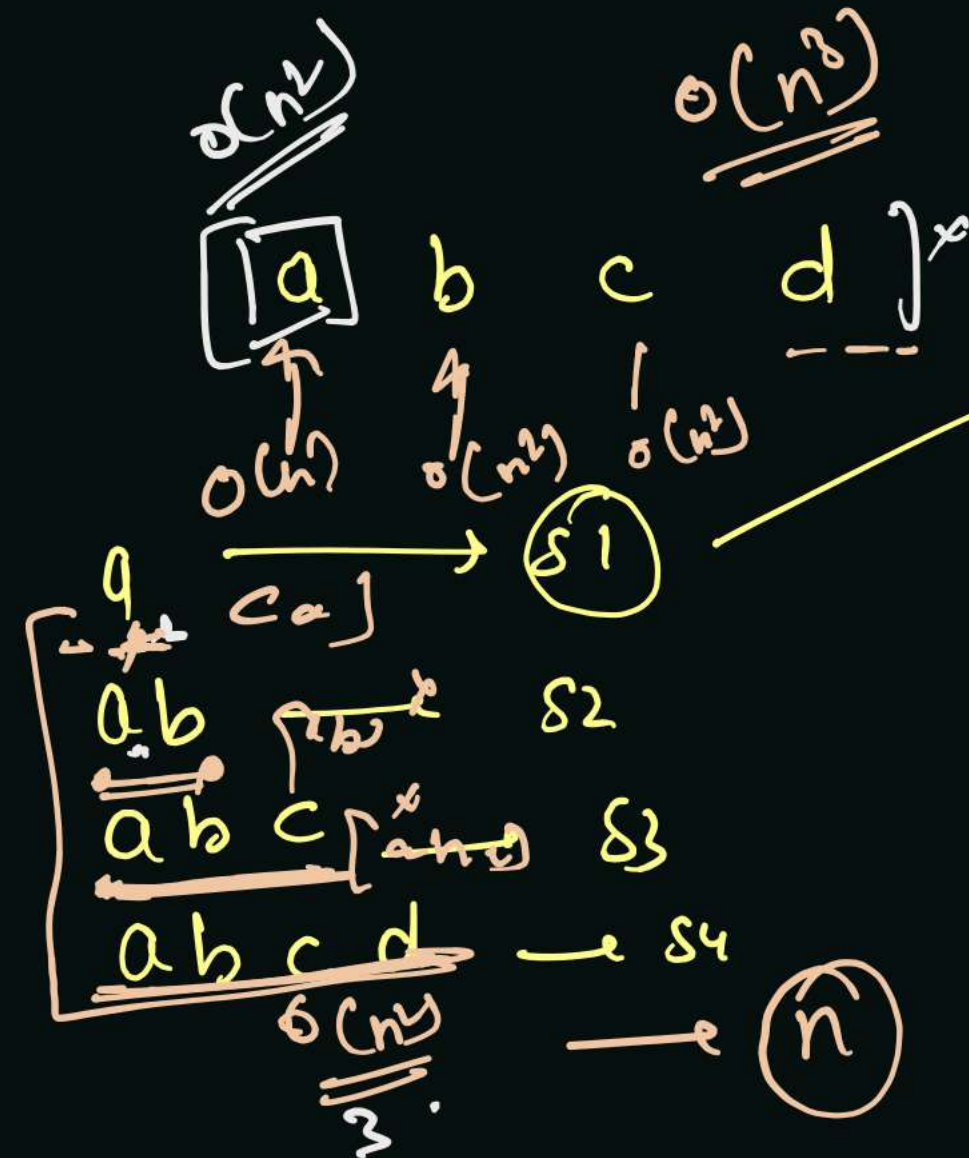 O(n²) O(n³)
[a b c d]
O(n) O(n²) O(n²)
a → S1
[a]
ab S2
abc S3
abcd → S4
O(n²) → n
3